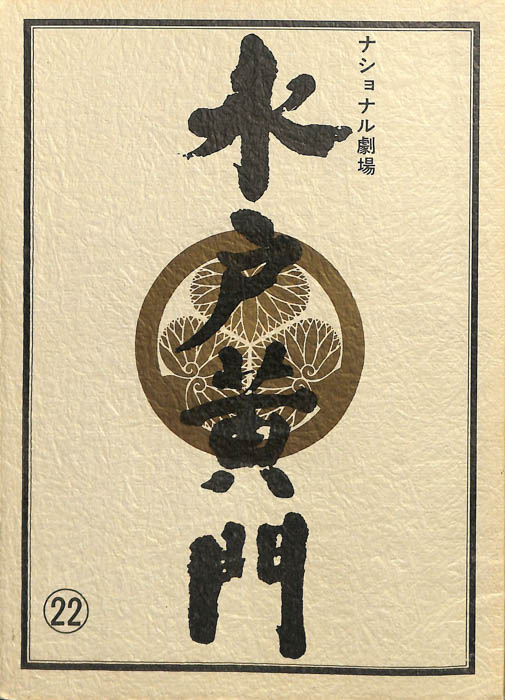 ナショナル劇場
水戸黄門
22